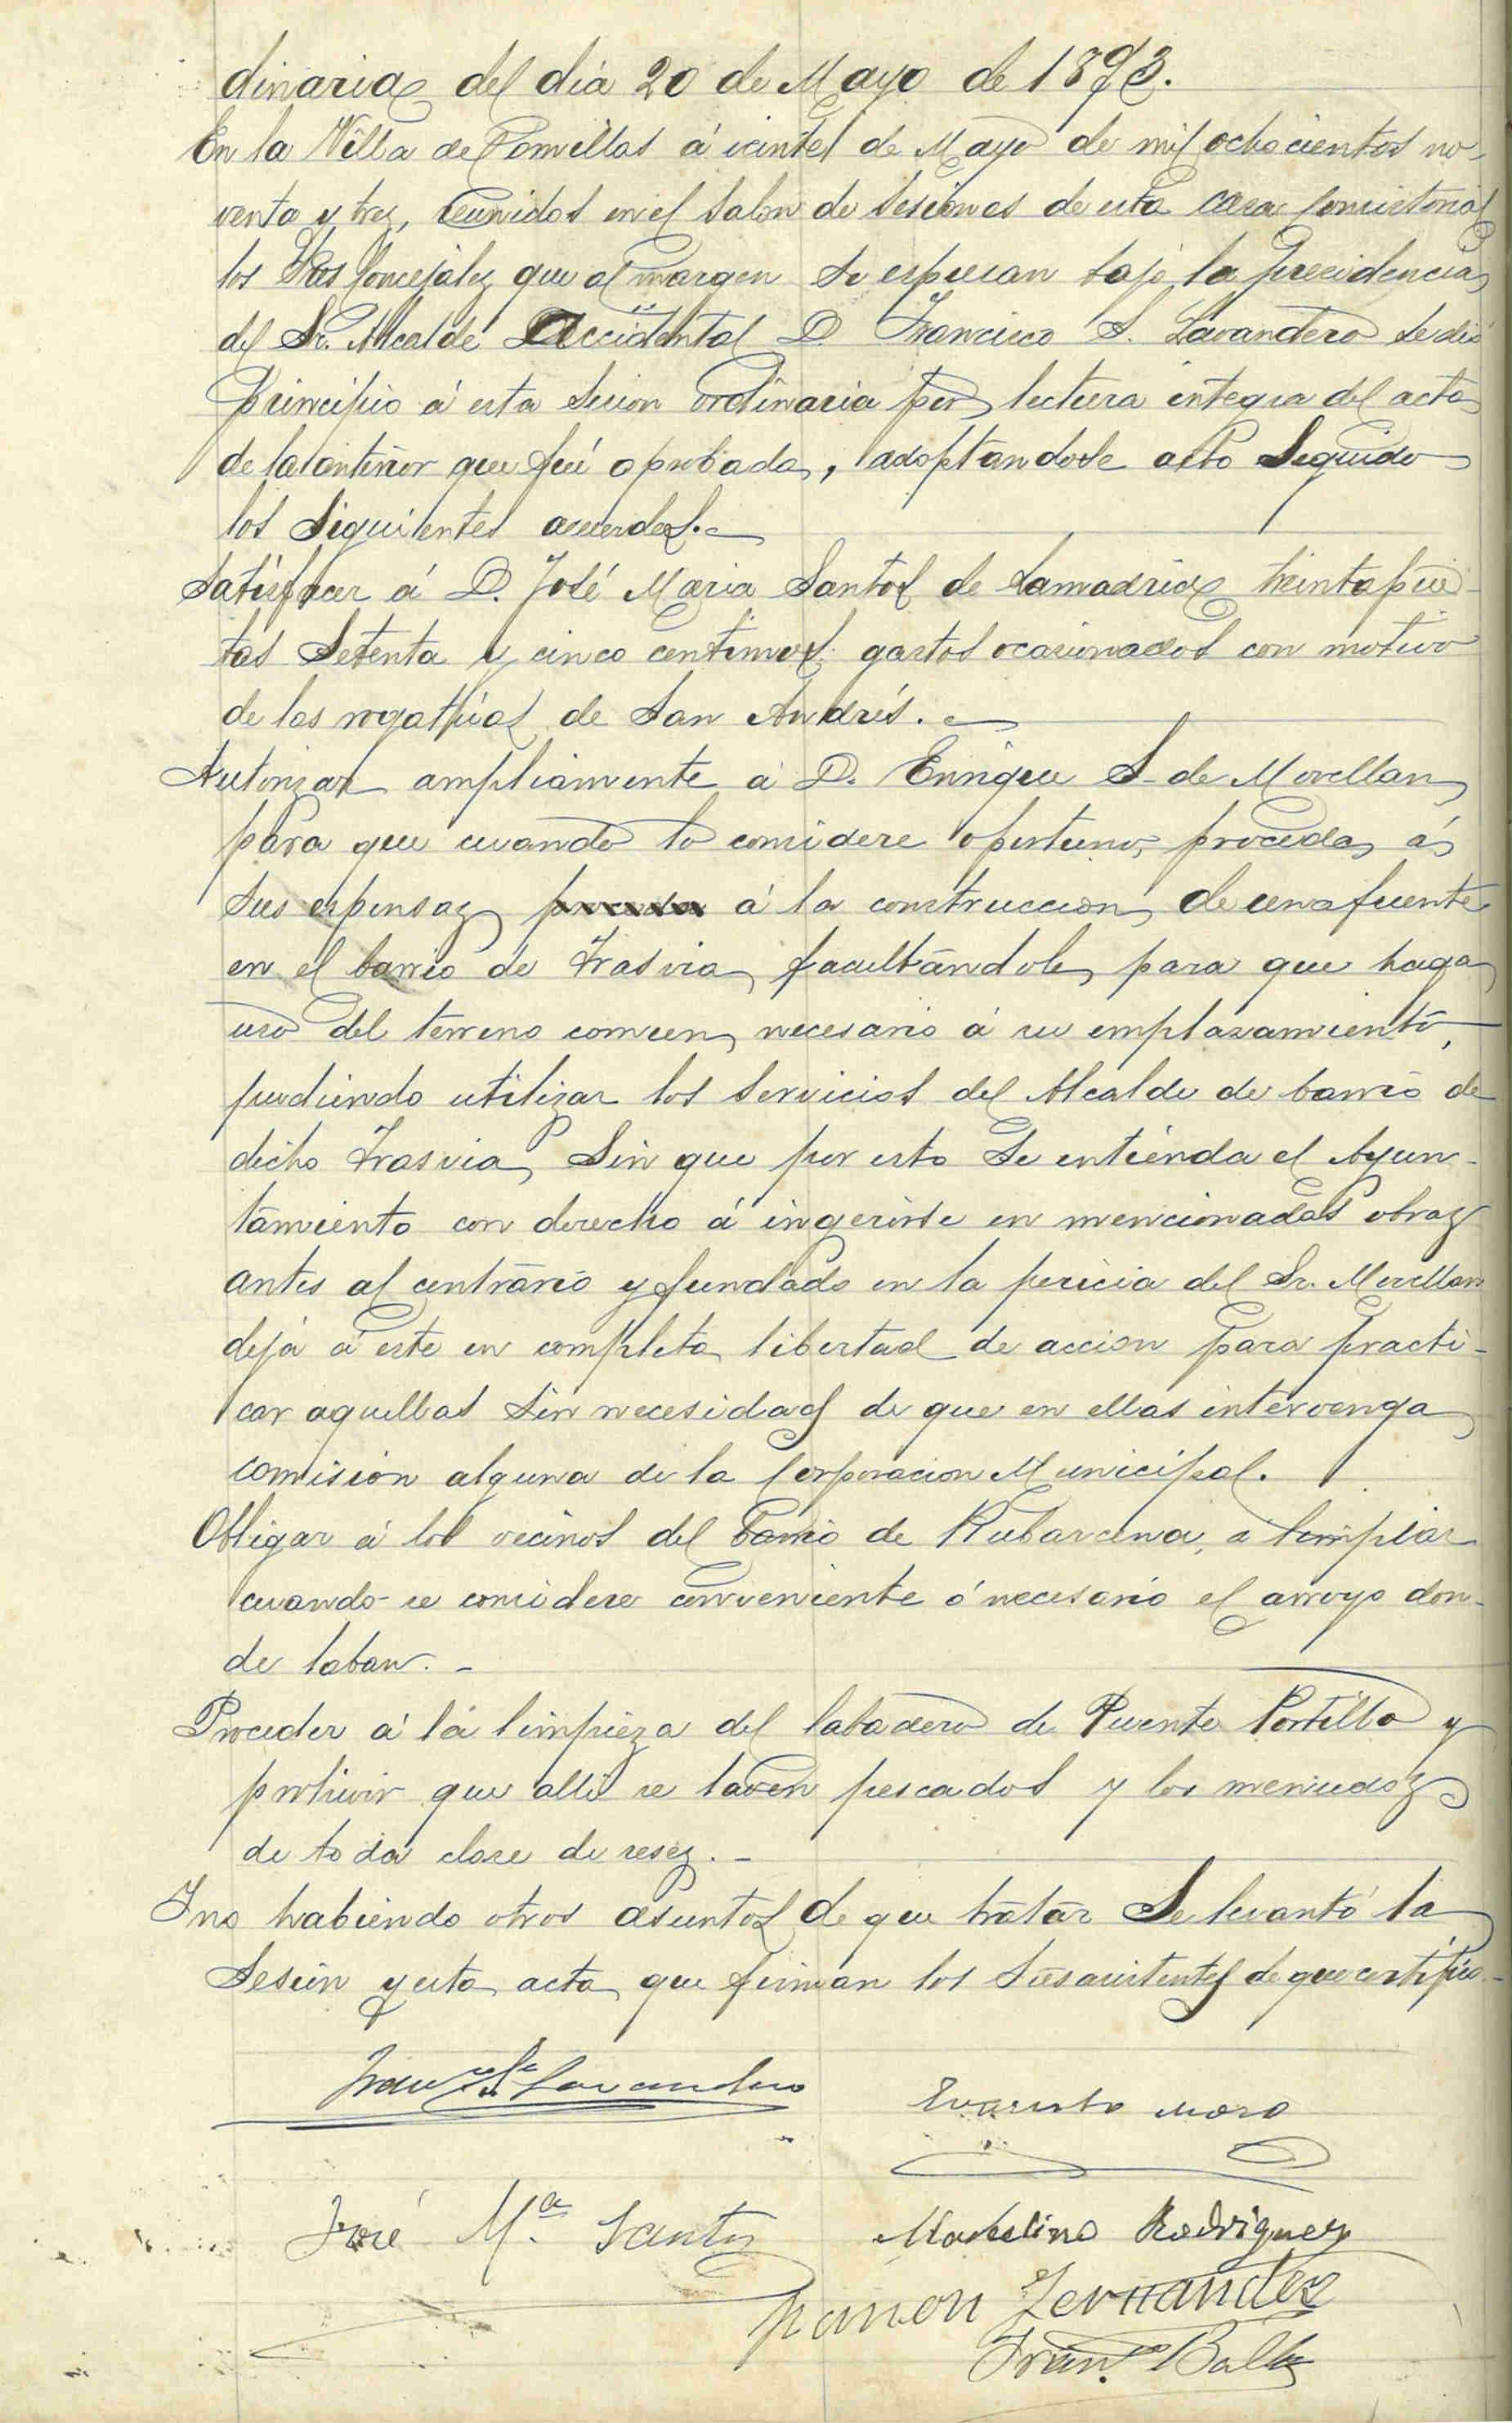 dinaria del dia 20 de Mayo de 1893.
En la Villa de Comillas á veinte de Mayo de mil ochocientos no-
venta y tres, reunidos en el salon de sesiones de esta casa consistorial
los Sres Concejales que al margen se espresan bajo la presidencia
del Sr. Alcalde Accidental D. Francisco S. Lavandero se dió
principio á esta sesion ordinaria por lectura integra del acta
de la anterior que fué aprobada, adoptandose acto seguido
los siguientes acuerdos.
Satisfacer á D. José Maria Santos de Lamadrid treinta pese-
tas setenta y cinco centimos gastos ocasionados con motivo
de las rogativas de San Andrés.
Autorizar ampliamente á D. Enrique S. de Movellan
para que cuando lo considere oportuno, proceda á
sus espensas proceda á la construccion de una fuente
en el barrio de Trasvia, facultándole para que haga
uso del terreno comun necesario á su emplazamiento,
pudiendo utilizar los servicios del Alcalde de barrio de
dicho Trasvia, sin que por esto se entienda el Ayun-
tamiento con derecho á ingerirse en mencionadas obras
antes al contrario y fundado en la pericia del Sr. Movellan
deja á este en completa libertad de accion para practi-
car aquellas sin necesidad de que en ellas intervenga
comisión alguna de la Corporacion Municipal.
Obligar á los vecinos del barrio de Rubarcena, á limpiar
cuando se considere conveniente ó necesario el arroyo don-
de laban.
Proceder á la limpieza del labadero de Puente Portillo y
prohivir que alli se laven pescados y los menudos
de toda clase de reses.
Y no habiendo otros asuntos de que tratar se levantó la
sesion y esta acta que firman los Sres asistentes de que certifico.
Franco S. Lavandero
Evaristo Moro
José Mª Santos
Marcelino Rodriguez
Ramon Fernandez
Franco